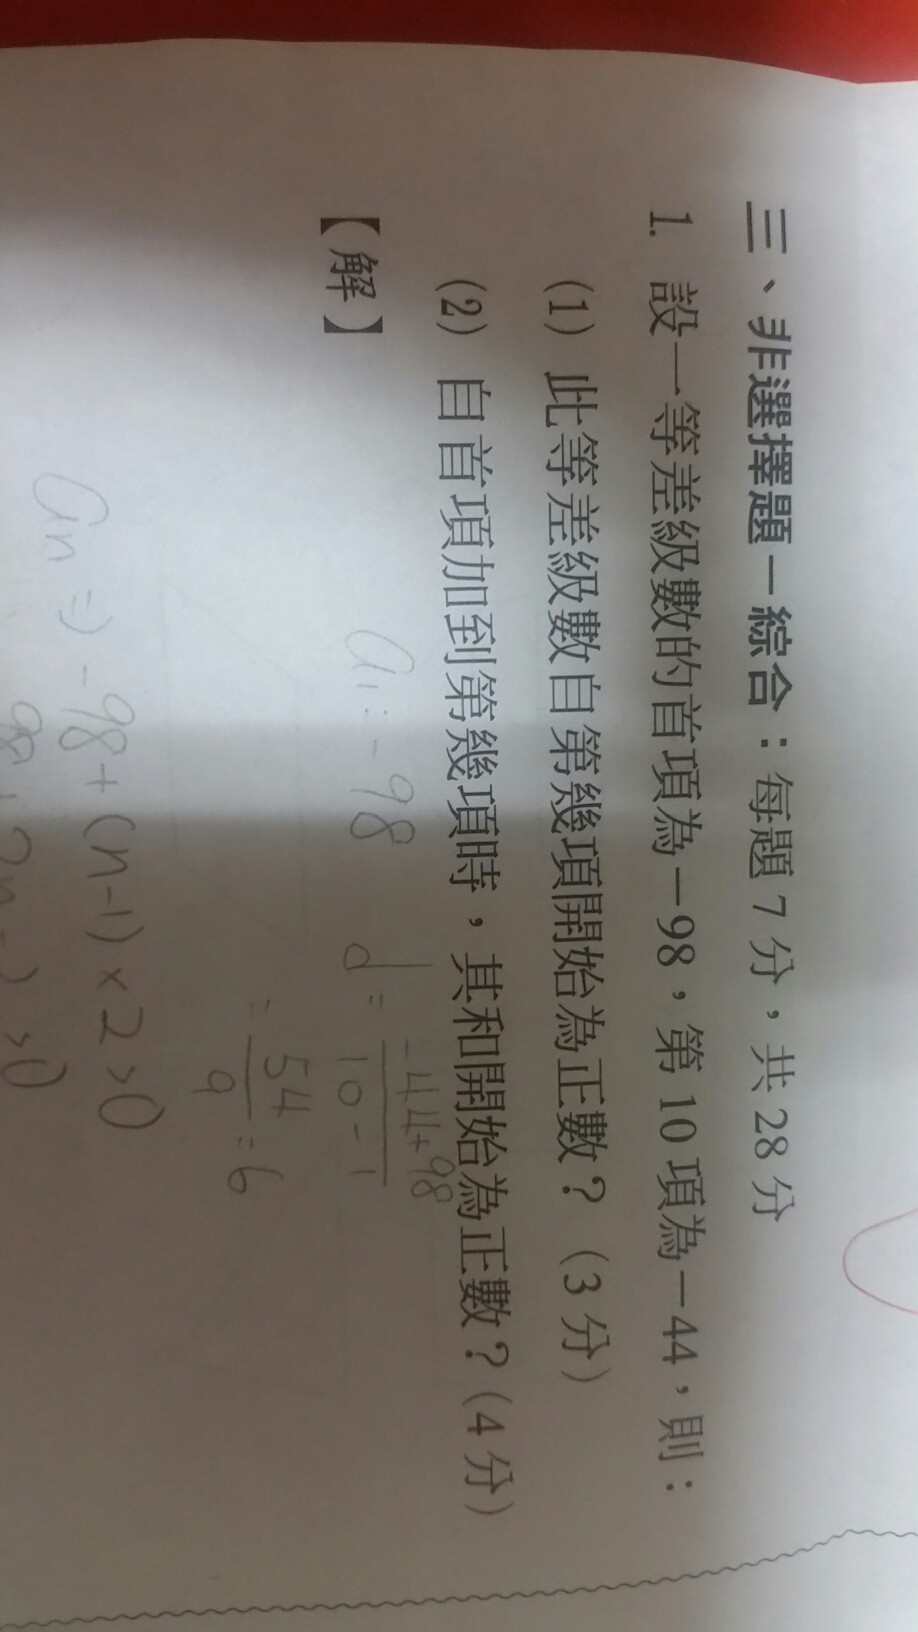 三、非選擇題－綜合：每題 7 分，共 28 分
1. 設一等差級數的首項為－98，第 10 項為－44，則：
(1) 此等差級數自第幾項開始為正數？（3 分）
(2) 自首項加到第幾項時，其和開始為正數？（4 分）
【解】
a₁ = -98 d = (-44+98)/(10-1)
= 54/9 = 6
an ⇒ -98 + (n-1) × 2 > 0